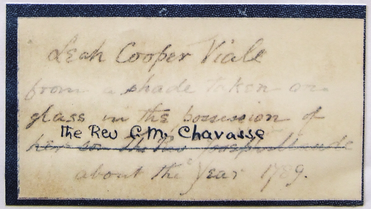 Leah Cooper Viale
from a shade taken on
glass in the possession of
The Rev C.M. Chavasse
her son the Rev
about the Year 1789.